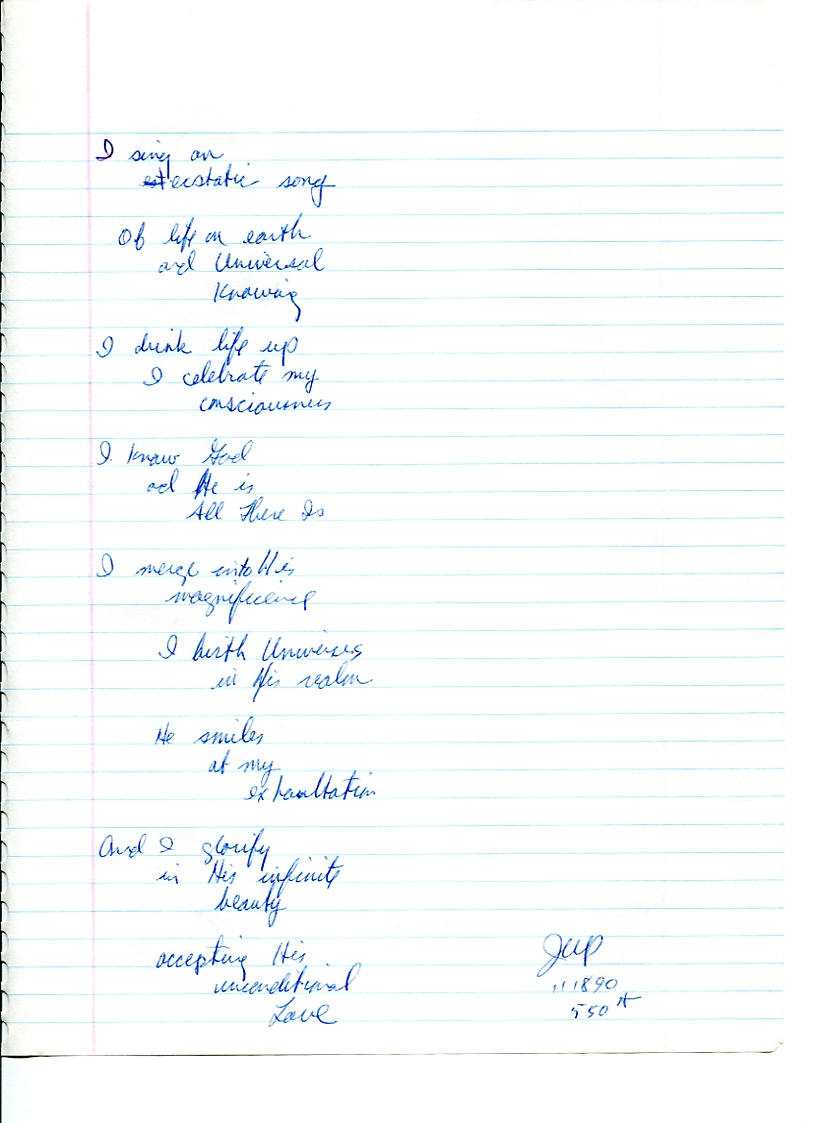 I sing an
ecstatic song
Of life on earth
and Universal
Knowing
I drink life up
I celebrate my
consciousness
I know God
and He is
All There Is
I merge into His
magnificence
I birth Universes
in His realm
He smiles
at my
exhaultation
And I glorify
in His infinite
beauty
accepting His
unconditional
Love
JWP
111890
550